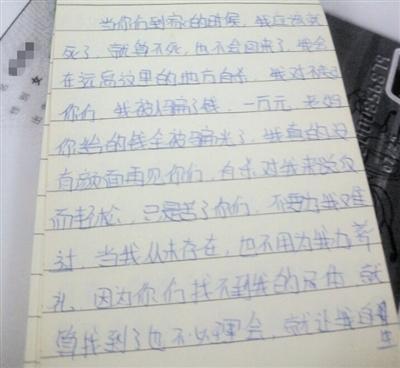 当你们到家的时候,我应该就
死了,就算不死,也不会回来了,我会
在远离这里的地方自杀。我对不起
你们,我被人骗了钱,一万元,老妈
你给的钱全被骗光了,我真的没
有颜面再见你们,自杀对我来说反
而轻松,只是苦了你们,不要为我难
过,当我从未存在,也不用为我办葬
礼,因为你们找不到我的尸体,就
算找到了也不必理会,就让我自
生